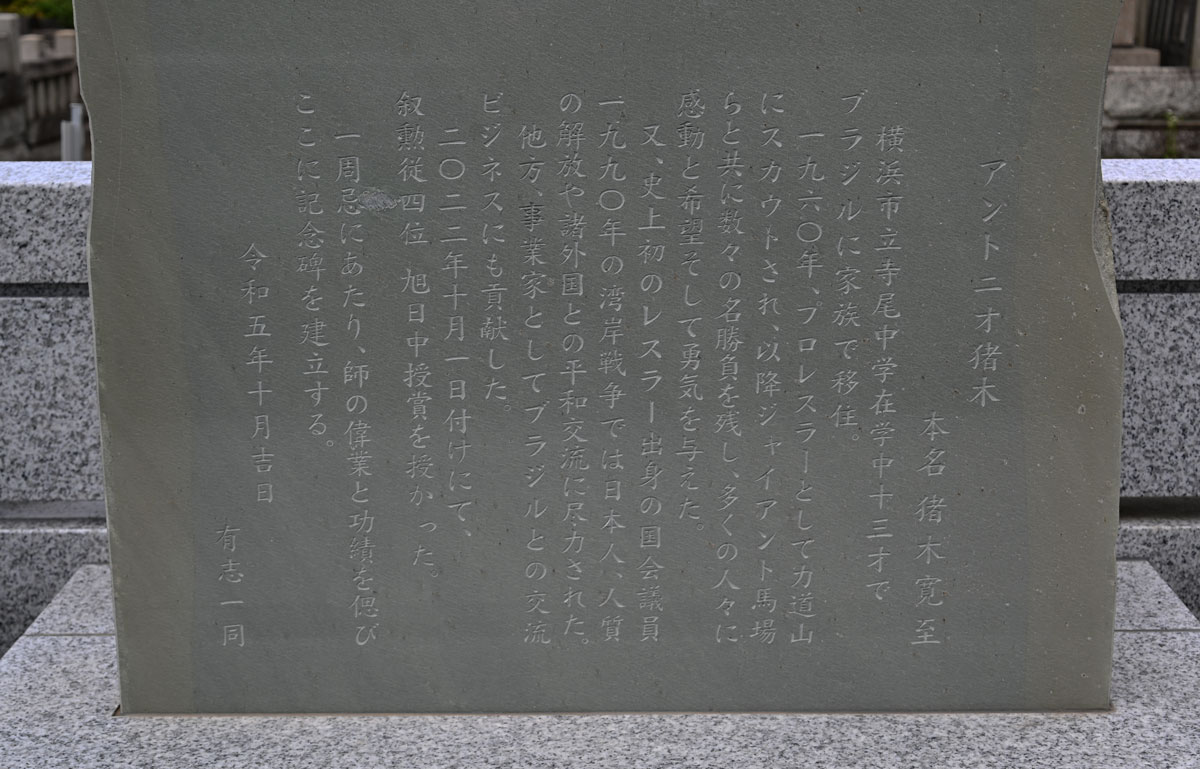 アントニオ猪木
本名 猪木寛至
横浜市立寺尾中学在学中十三才で
ブラジルに家族で移住。
一九六〇年、プロレスラーとして力道山
にスカウトされ、以降ジャイアント馬場
らと共に数々の名勝負を残し、多くの人々に
感動と希望そして勇気を与えた。
又、史上初のレスラー出身の国会議員
一九九〇年の湾岸戦争では日本人、人質
の解放や諸外国との平和交流に尽力された。
他方、事業家としてブラジルとの交流
ビジネスにも貢献した。
二〇二二年十月一日付けにて、
叙勲従四位 旭日中授賞を授かった。
一周忌にあたり、師の偉業と功績を偲び
ここに記念碑を建立する。
令和五年十月吉日
有志一同